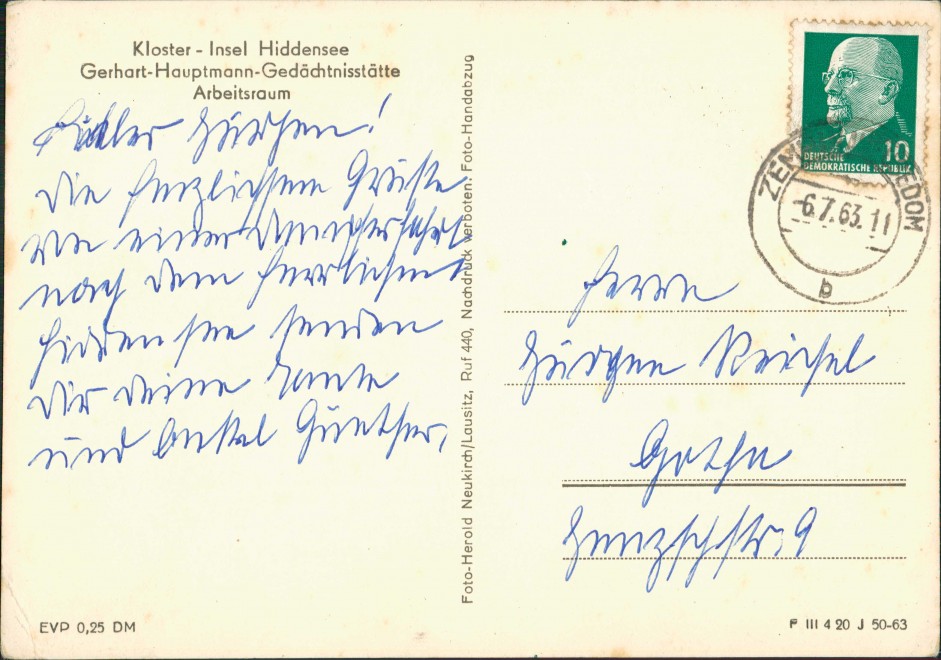 Kloster - Insel Hiddensee
Gerhart-Hauptmann-Gedächtnisstätte
Arbeitsraum
Jürgen!
die herzlichsten Grüße
von einer Dampferfahrt
nach dem herrlichen
Hiddensee senden
dir deine Tante
und Onkel Günther.
Foto-Herold Neukirch/Lausitz, Ruf 440, Nachdruck verboten: Foto-Handabzug
DEUTSCHE
DEMOKRATISCHE REPUBLIK
10
ZEM EDOM
-6.7.63.11
b
Herrn
Jürgen Reichel
Gotha
9
EVP 0,25 DM
F III 4 20 J 50-63